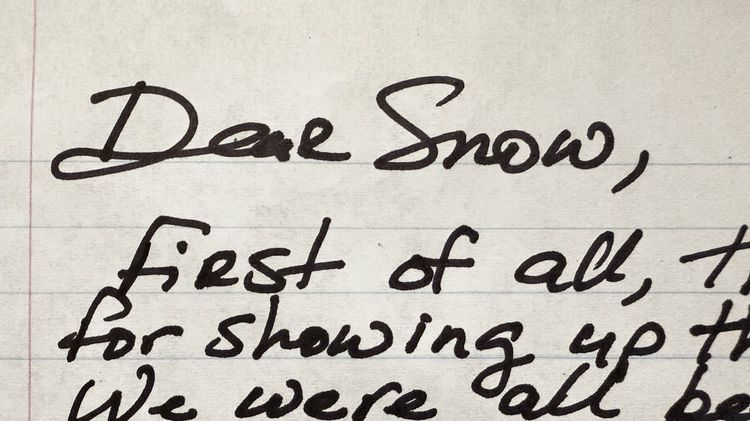 Dear Snow,
First of all,
for showing up
We were all